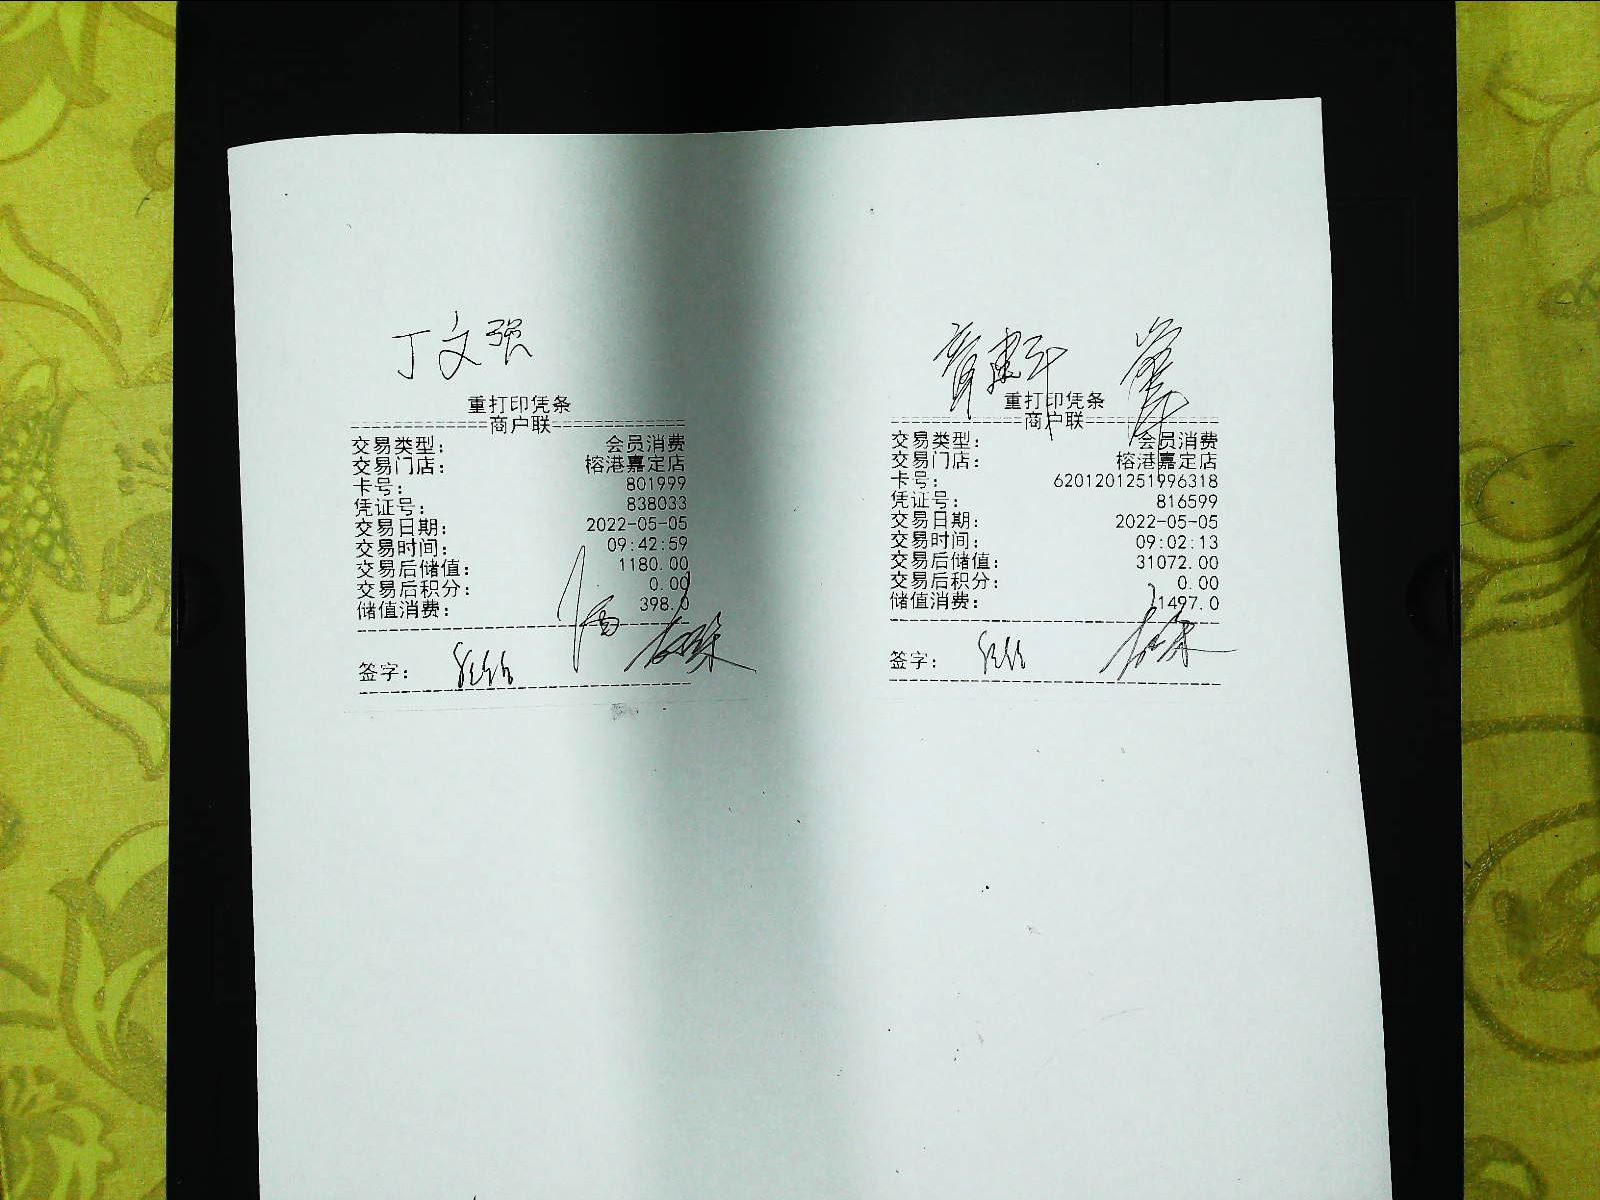 丁文强
重打印凭条
商户联
交易类型: 会员消费
交易门店: 榕港嘉定店
卡号: 801999
凭证号: 838033
交易日期: 2022-05-05
交易时间: 09:42:59
交易后储值: 1180.00
交易后积分: 0.00
储值消费: 398.0
签字:
重打印凭条
商户联
交易类型: 会员消费
交易门店: 榕港嘉定店
卡号: 6201201251996318
凭证号: 816599
交易日期: 2022-05-05
交易时间: 09:02:13
交易后储值: 31072.00
交易后积分: 0.00
储值消费: 11497.0
签字: